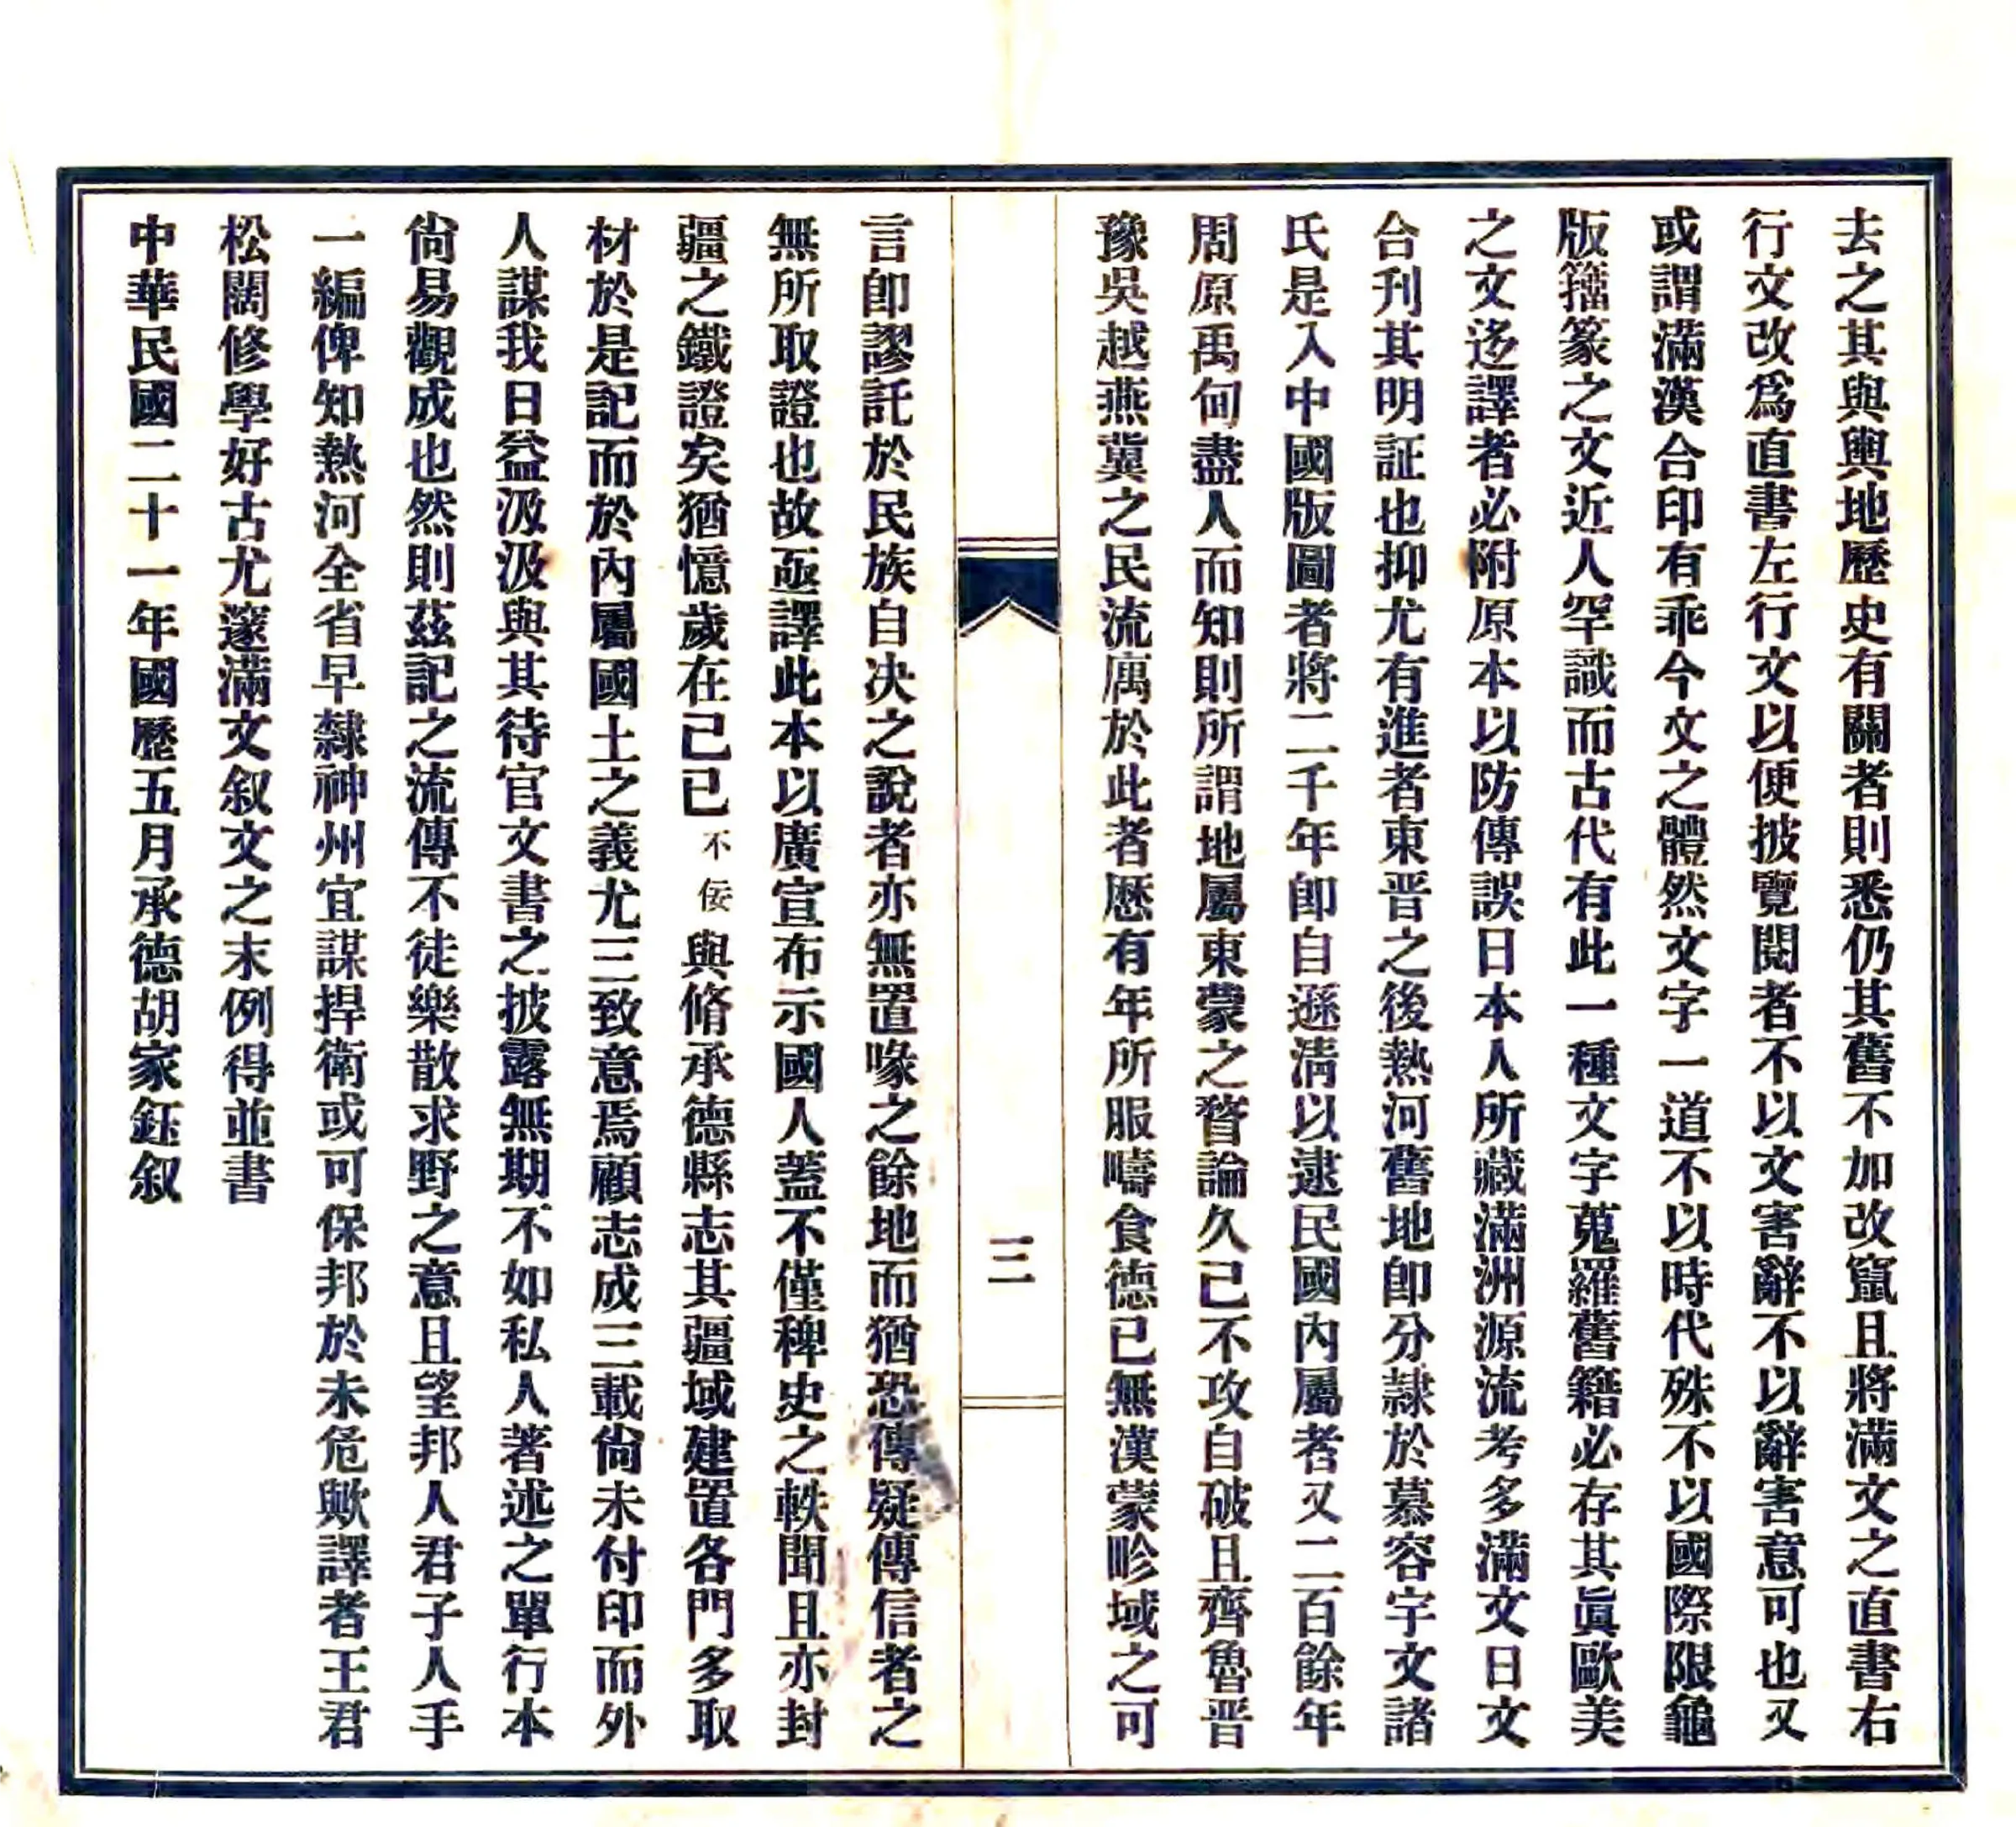 去之其與輿地歷史有關者則悉仍其舊不加改竄且將滿文之直書右
行文改爲直書左行文以便披覽閱者不以文害辭不以辭害意可也又
或謂滿漢合印有乖今文之體然文字一道不以時代殊不以國際限龜
版籀篆之文近人罕識而古代有此一種文字蒐羅舊籍必存其眞歐美
之文迻譯者必附原本以防傳誤日本人所藏滿洲源流考多滿文日文
合刊其明証也抑尤有進者東晋之後熱河舊地卽分隷於慕容宇文諸
氏是入中國版圖者將二千年卽自遜淸以逮民國內屬者又二百餘年
周原禹甸盡人而知則所謂地屬東蒙之瞀論久已不攻自破且齊魯晋
豫吳越燕冀之民流厲於此者歷有年所服疇食德已無漢蒙畛域之可
三
言卽謬託於民族自决之說者亦無置喙之餘地而猶恐傳疑傳信者之
無所取證也故亟譯此本以廣宣布示國人蓋不僅稗史之軼聞且亦封
疆之鐵證矣猶憶歲在己巳不佞與脩承德縣志其疆域建置各門多取
材於是記而於內屬國土之義尤三致意焉顧志成三載尙未付印而外
人謀我日益汲汲與其待官文書之披露無期不如私人著述之單行本
尙易觀成也然則茲記之流傳不徒樂散求野之意且望邦人君子人手
一編俾知熱河全省早隸神州宜謀捍衛或可保邦於未危歟譯者王君
松闊修學好古尤邃滿文叙文之末例得並書
中華民國二十一年國歷五月承德胡家鈺叙